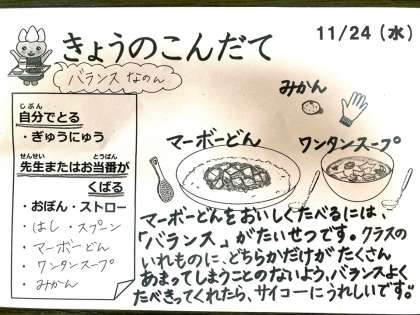 きょうのこんだて
11/24（水）
バランス なのん
みかん
じぶん
自分でとる
・ぎゅうにゅう
せんせい とうばん
先生またはお当番が
くばる
・おぼん・ストロー
・はし・スプーン
・マーボーどん
・ワンタンスープ
・みかん
マーボーどん
ワンタンスープ
マーボーどんをおいしくたべるには、
「バランス」がたいせつです。クラスの
いれものに、どちらかだけがたくさん
あまってしまうことのないよう、バランスよく
たべきってくれたら、サイコーにうれしいです。